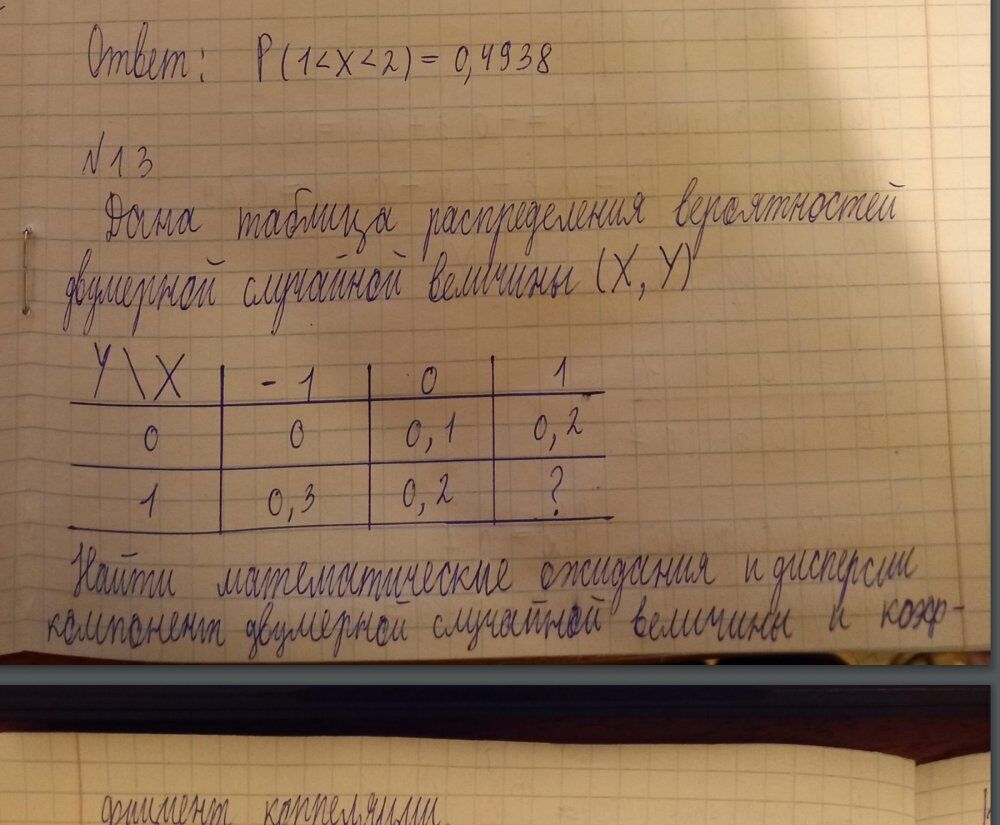 Ответ: P(1<X<2) = 0,4938
N13
Дана таблица распределения вероятностей
двумерной случайной величины (X, Y)
Y\X -1 0 1
0 0 0,1 0,2
1 0,3 0,2 ?
Найти математические ожидания и дисперсии
компонент двумерной случайной величины и коэф-
фициент корреляции.